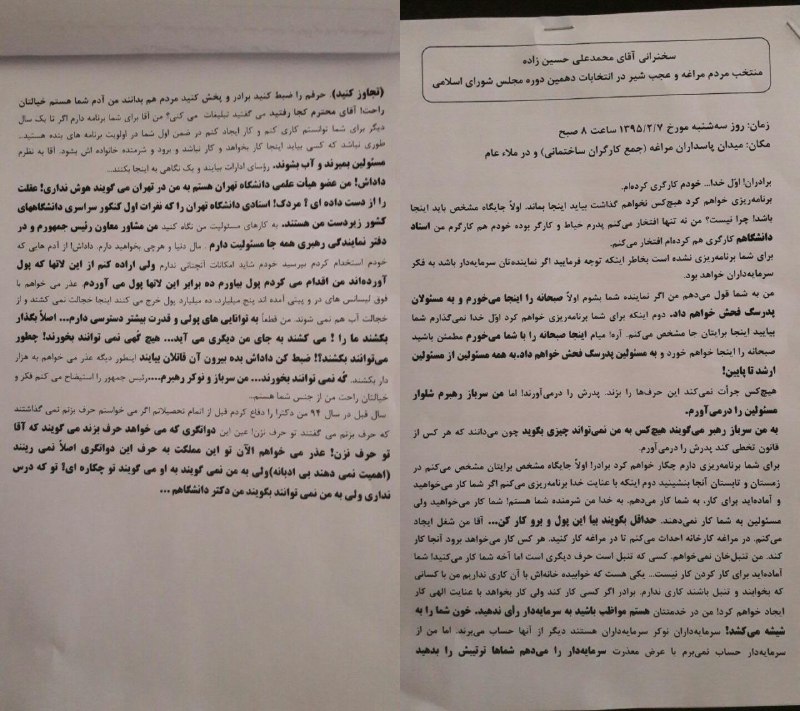 سخنرانی آقای محمدعلی حسین زاده
منتخب مردم مراغه و عجب شیر در انتخابات دهمین دوره مجلس شورای اسلامی
زمان: روز سه‌شنبه مورخ ۱۳۹۵/۲/۷ ساعت ۸ صبح
مکان: میدان پاسداران مراغه (جمع کارگران ساختمانی) و در ملاء عام
برادران! اوّل خدا... خودم کارگری کرده‌ام.
برنامه‌ریزی خواهم کرد هیچ‌کس نخواهم گذاشت بیاید اینجا بماند. اولاً جایگاه مشخص باید اینجا
باشد! چرا نیست؟ من نه تنها افتخار می‌کنم پدرم خیاط و کارگر بوده خودم هم کارگرم من استاد
دانشگاهم کارگری هم کرده‌ام افتخار می‌کنم.
برای شما برنامه‌ریزی نشده است بخاطر اینکه توجه فرمایید اگر نماینده‌تان سرمایه‌دار باشد به فکر
سرمایه‌داران خواهد بود.
من به شما قول می‌دهم من اگر نماینده شما بشوم اولاً صبحانه را اینجا می‌خورم و به مسئولان
پدرسگ فحش خواهم داد. دوم اینکه برای شما برنامه‌ریزی خواهم کرد اوّل خدا نمی‌گذارم شما
بیایید اینجا برایتان جا مشخص می‌کنم. آره! میام اینجا صبحانه را با شما می‌خورم مطمئن باشید
صبحانه را اینجا خواهم خورد و به مسئولین پدرسگ فحش خواهم داد.به همه مسئولین از مسئولین
ارشد تا پایین!
هیچ‌کس جرأت نمی‌کند این حرف‌ها را بزند. پدرش را درمی‌آورند! اما من سرباز رهبرم شلوار
مسئولین را درمی‌آورم.
به من سرباز رهبر می‌گویند هیچ‌کس به من نمی‌تواند چیزی بگوید چون می‌دانند که هر کس از
قانون تخطی کند پدرش را درمی‌آورم.
برای شما برنامه‌ریزی دارم چکار خواهم کرد برادر! اولاً جایگاه مشخص برایتان مشخص می‌کنم در
زمستان و تابستان آنجا بنشینید دوم اینکه با عنایت خدا برنامه‌ریزی می‌کنم اگر شما کار می‌خواهید
و آماده‌اید برای کار، به شما کار می‌دهم. به خدا من شرمنده شما هستم! شما کار می‌خواهید ولی
مسئولین به شما کار نمی‌دهند. حداقل بگویند بیا این پول و برو کار کن... آقا من شغل ایجاد
می‌کنم. در مراغه کارخانه احداث می‌کنم تا در مراغه کار کنید. هر کس کار می‌خواهد برود آنجا کار
کند. من تنبل‌خان نمی‌خواهم. کسی که تنبل است حرف دیگری است اما آخه شما کار می‌کنید! شما
آماده‌اید برای کار کردن کار نیست... یکی هست که خوابیده خانه‌اش با آن کاری نداریم من با کسانی
که بخوابند و تنبل باشند کاری ندارم. برادر اگر کسی کار کند ولی کار بخواهد با عنایت الهی کار
ایجاد خواهم کرد! من در خدمتتان هستم مواظب باشید به سرمایه‌دار رأی ندهید. خون شما را به
شیشه می‌کشد! سرمایه‌داران نوکر سرمایه‌داران هستند دیگر از آنها حساب می‌برند. اما من از
سرمایه‌دار حساب نمی‌برم با عرض معذرت سرمایه‌دار را می‌دهم شماها ترتیبش را بدهید
(تجاوز کنید). حرفم را ضبط کنید برادر و پخش کنید مردم هم بدانند من آدم شما هستم خیالتان
راحت! آقای محترم کجا رفتید می گفتید تبلیغات می کنی؟ من آقا برای شما برنامه دارم اگر تا یک سال
دیگر برای شما توانستم کاری کنم و کار ایجاد کنم در ضمن اول شما در اولویت برنامه های بنده هستید...
طوری نباشد که کسی بیاید اینجا کار بخواهد و کار نباشد و برود و شرمنده خانواده اش بشود. آقا به نظرم
مسئولین بمیرند و آب بشوند. رؤسای ادارات بیایند و یک نگاهی به اینجا بکنند...
داداش! من عضو هیأت علمی دانشگاه تهران هستم به من در تهران می گویند هوش نداری! عقلت
را از دست داده ای؟ مردک! اسنادی دانشگاه تهران را که نفرات اول کنکور سراسری دانشگاههای
کشور زیردست من هستند. به کارهای مسئولیت من نگاه کنید من مشاور معاون رئیس جمهورم و در
دفتر نمایندگی رهبری همه جا مسئولیت دارم . مال دنیا و هرچی بخواهید دارم. داداش! از آدم هایی که
خودم استخدام کردم بپرسید خودم شاید امکانات آنچنانی ندارم ولی اراده کنم از این لاتها که پول
آورده‌اند من اقدام می کردم پول بیاورم ده برابر این لاتها پول می آوردم. عذر می خواهم با
فوق لیسانس های در و پیتی آمده اند پنج میلیارد، ده میلیارد پول خرج می کنند اینجا خجالت نمی کشند و از
خجالت آب هم نمی شوند. من قطعاً به توانایی های پولی و قدرت بیشتر دسترسی دارم... اصلاً بگذار
بکشند ما را ! می کشند به جای من دیگری می آید... هیچ گهی نمی توانند بخورند! چطور
می‌توانند بکشند؟! ضبط کن داداش بده بیرون آن قاتلان بیایند اینطور دیگه عذر می خواهم به هزار
دار بکشند. گه نمی توانند بخورند... من سرباز و نوکر رهبرم....رئیس جمهور را استیضاح می کنم فکر و
خیالتان راحت من از جنس شما هستم...
سال قبل در سال ۹۴ من دکترا را دفاع کردم قبل از اتمام تحصیلاتم اگر می خواستم حرف بزنم نمی گذاشتند
که حرف بزنم می گفتند تو حرف نزن! عین این دوانگری که می خواهد حرف بزند می گویند که آقا
تو حرف نزن! عذر می خواهم الآن تو این مملکت به حرف این دوانگری اصلاً نمی رینند
(اهمیت نمی دهند بی ادبانه)ولی به من نمی گویند به او می گویند تو چکاره ای! تو که درس
نداری ولی به من نمی توانند بگویند من دکتر دانشگاهم ...